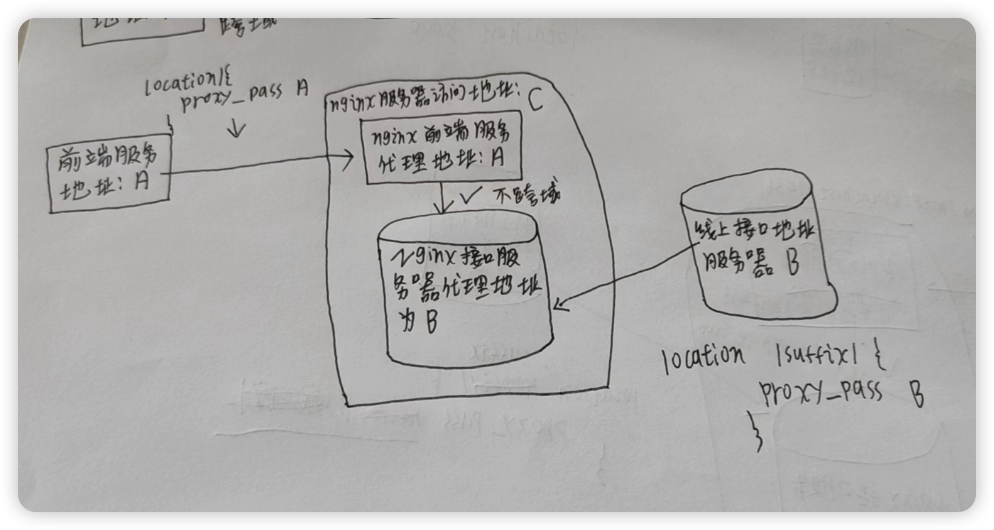 跨域
location/{
proxy_pass A
}
前端服务
地址: A
nginx服务器访问地址: C
nginx前端服务
代理地址: A
✓ 不跨域
Nginx接口服
务器代理地址
为B
线上接口地址
服务器 B
location /suffix/ {
proxy_pass B
}